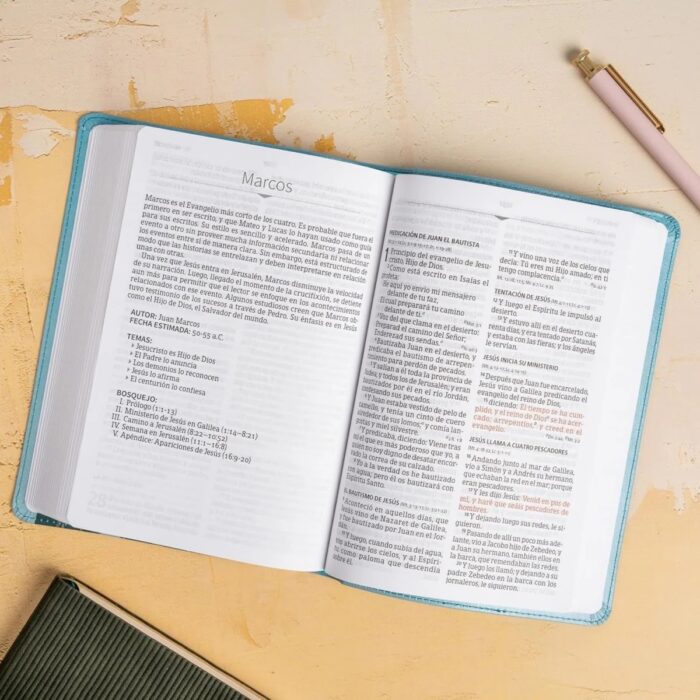 Marcos
Marcos es el Evangelio más corto de los cuatro. Es probable que fuera el
primero en ser escrito, y que Mateo y Lucas lo hayan usado como guía
para sus escritos. Su estilo es sencillo y acelerado. Marcos pasa de un
evento a otro sin proveer mucha información secundaria ni relacionar
los eventos entre sí de manera clara. Sin embargo, está estructurado de
modo que las historias se entrelazan y deben interpretarse en relación
unas con otras.
Una vez que Jesús entra en Jerusalén, Marcos disminuye la velocidad
de su narración. Luego, llegado el momento de la crucifixión, se detiene
aun más para permitir que el lector se enfoque en los acontecimientos
relacionados con ese evento. Algunos estudiosos creen que Marcos ob-
tuvo testimonio de los sucesos a través de Pedro. Su énfasis es en Jesús
como el Hijo de Dios, el Salvador del mundo.
AUTOR: Juan Marcos
FECHA ESTIMADA: 50-55 a.C.
TEMAS:
Jesucristo es Hijo de Dios
El Padre lo anuncia
Los demonios lo reconocen
Jesús lo afirma
El centurión lo confiesa
BOSQUEJO:
I. Prólogo (1:1-13)
II. Ministerio de Jesús en Galilea (1:14–8:21)
III. Camino a Jerusalén (8:22–10:52)
IV. Semana en Jerusalén (11:1–16:8)
V. Apéndice: Apariciones de Jesús (16:9-20)
DE JUAN EL BAUTISTA
1 Principio del evangelio de Jesu-
cristo, Hijo de Dios.
Como está escrito en Isaías el
He aquí yo envío mi mensajero
delante de tu faz,
El cual preparará tu camino
delante de ti.
Voz del que clama en el desierto:
Preparad el camino del Señor;
Enderezad sus sendas.
Bautizaba Juan en el desierto, y
predicaba el bautismo de arrepen-
timiento para perdón de pecados.
Y salían a él toda la provincia de
Judea, y todos los de Jerusalén; y eran
bautizados por él en el río Jordán,
confesando sus pecados.
Y Juan estaba vestido de pelo de
camello, y tenía un cinto de cuero
alrededor de sus lomos; y comía lan-
gostas y miel silvestre.
Y predicaba, diciendo: Viene tras
mí el que es más poderoso que yo, a
quien no soy digno de desatar encor-
vado la correa de su calzado.
Yo a la verdad os he bautizado
con agua; pero él os bautizará con
Espíritu Santo.
EL BAUTISMO DE JESÚS
Aconteció en aquellos días, que
Jesús vino de Nazaret de Galilea,
y fue bautizado por Juan en el Jordán.
Y luego, cuando subía del agua,
vio abrirse los cielos, y al Espíri-
tu como paloma que descendía
sobre él.
Y vino una voz de los cielos que
decía: Tú eres mi Hijo amado; en ti
tengo complacencia.
TENTACIÓN DE JESÚS
Y luego el Espíritu le impulsó al
desierto.
Y estuvo allí en el desierto cua-
renta días, y era tentado por Satanás,
y estaba con las fieras; y los ángeles
le servían.
JESÚS INICIA SU MINISTERIO
Después que Juan fue encarcelado,
Jesús vino a Galilea predicando el
evangelio del reino de Dios,
diciendo: El tiempo se ha cum-
plido, y el reino de Dios se ha acer-
cado; arrepentíos, y creed en el
evangelio.
JESÚS LLAMA A CUATRO PESCADORES
Andando junto al mar de Galilea,
vio a Simón y a Andrés su hermano,
que echaban la red en el mar; porque
eran pescadores.
Y les dijo Jesús: Venid en pos de
mí, y haré que seáis pescadores de
hombres.
Y dejando luego sus redes, le si-
guieron.
Pasando de allí un poco más ade-
lante, vio a Jacobo hijo de Zebedeo, y
a Juan su hermano, también ellos en
la barca, que remendaban las redes.
Y luego los llamó; y dejando a su
padre Zebedeo en la barca con los
jornaleros, le siguieron.